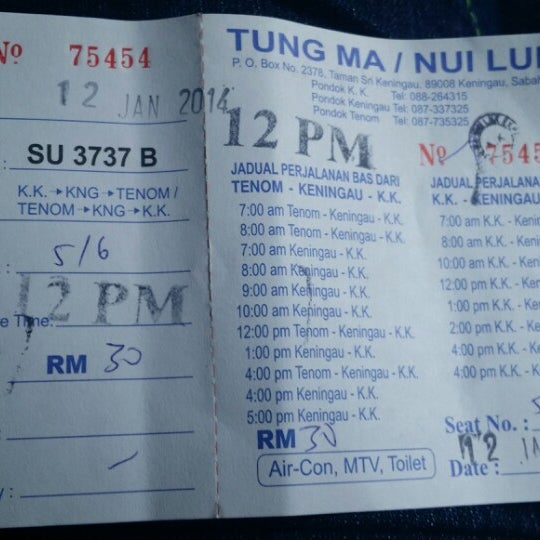 Nº 75454
12 JAN 2014
: SU 3737 B
K.K. → KNG → TENOM /
TENOM → KNG → K.K.
: 5/6
12 PM
e Time:
RM 30
:
y :
TUNG MA / NUI LU
P. O. Box No. 2378, Taman Sri Keningau, 89008 Keningau, Sabah
Pondok K. K. Tel: 088-264315
Pondok Keningau Tel: 087-337325
Pondok Tenom Tel: 087-735325
12 PM
Nº 7545
JADUAL PERJALANAN BAS DARI
TENOM - KENINGAU - K.K.
7:00 am Tenom - Keningau - K.K.
8:00 am Tenom - Keningau - K.K.
7:00 am Keningau - K.K.
8:00 am Keningau - K.K.
9:00 am Keningau - K.K.
10:00 am Keningau - K.K.
12:00 pm Tenom - Keningau - K.K.
1:00 pm Keningau - K.K.
4:00 pm Tenom - Keningau - K.K.
4:00 pm Keningau - K.K.
5:00 pm Keningau - K.K.
RM 30
Air-Con, MTV, Toilet
JADUAL PERJALANA
K.K. - KENINGAU
7:00 am K.K. - Ken
8:00 am K.K. - Ken
10:00 am K.K. - Ken
12:00 pm K.K. - Ken
1:00 pm K.K. - Ken
2:00 pm K.K. - Ken
4:00 pm K.K. - Ken
4:00 pm K.K. - Ken
Seat No. : 5
Date : 12 JA